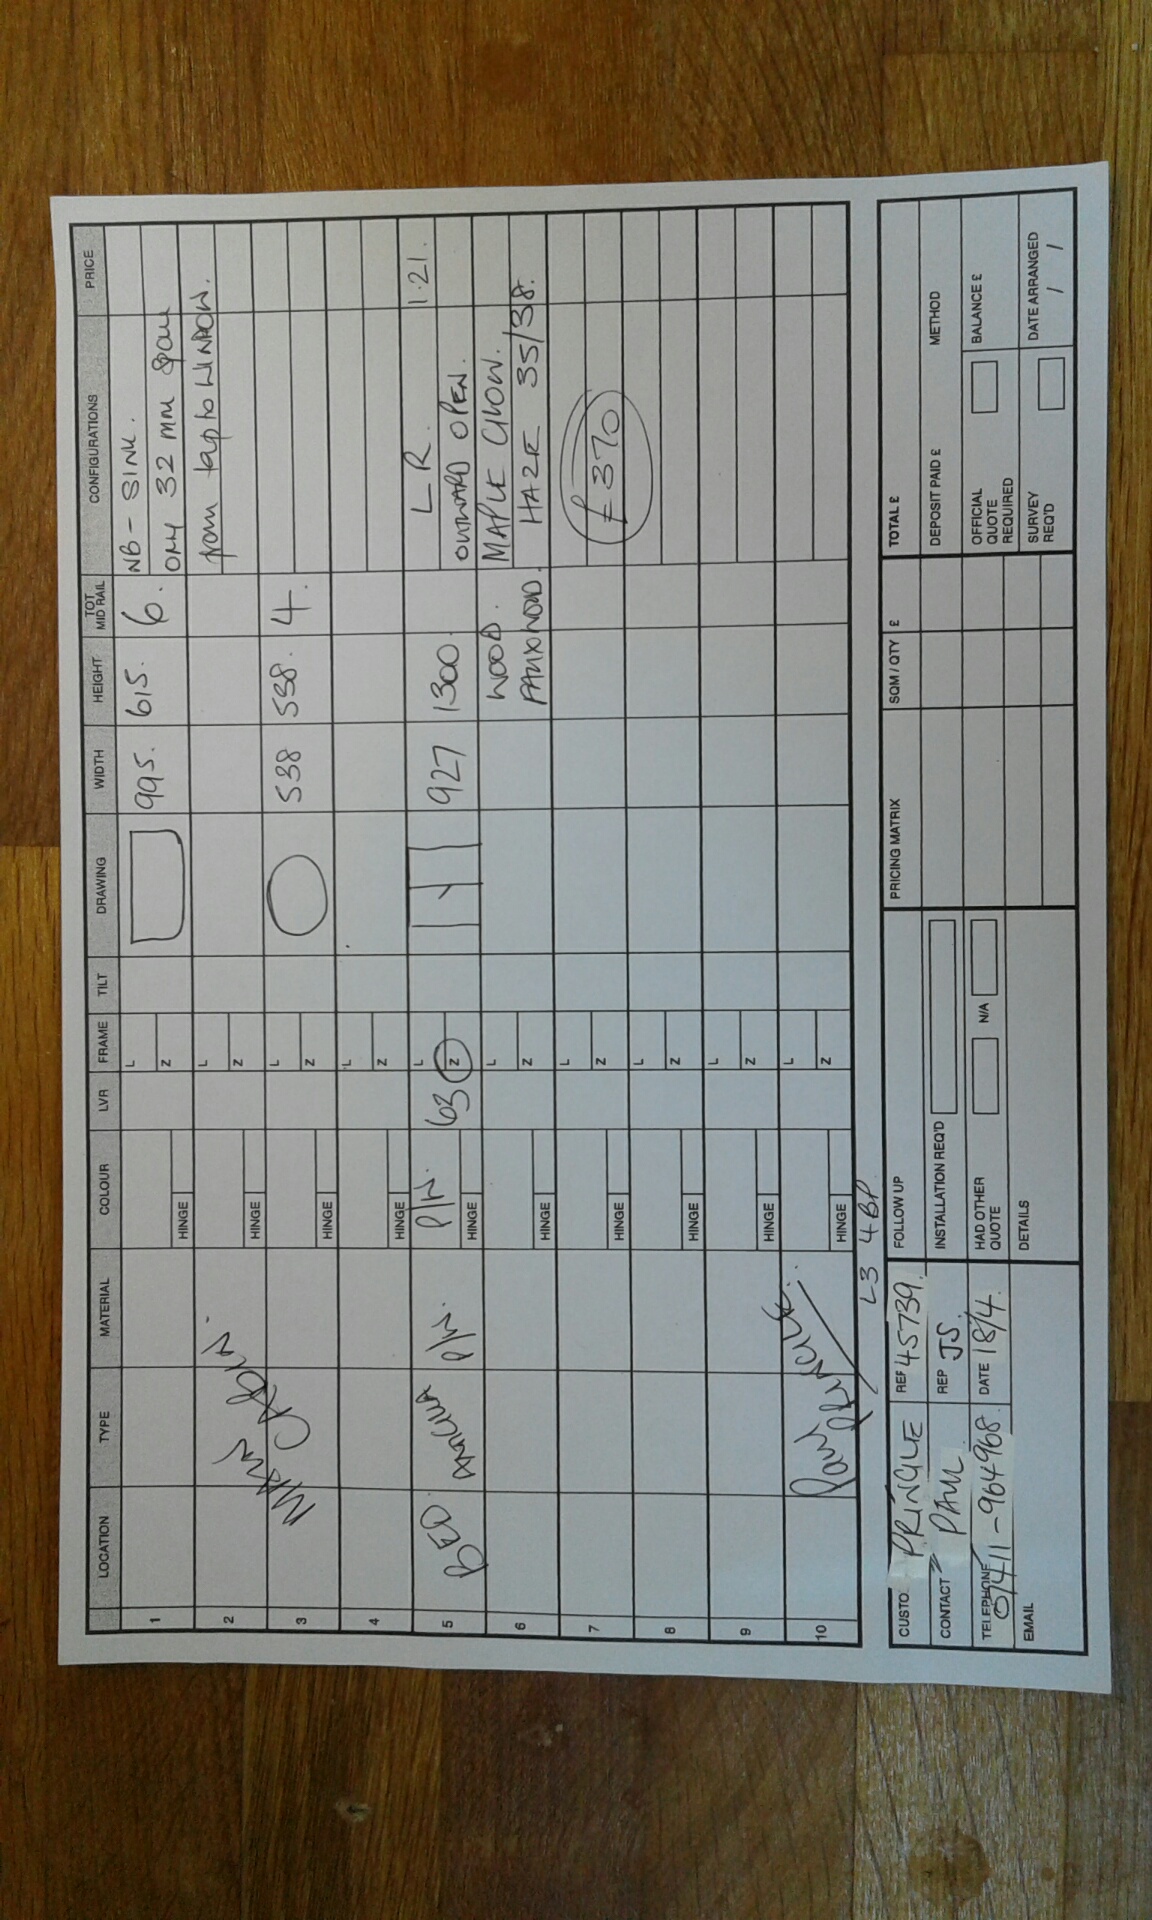 LOCATION TYPE MATERIAL COLOUR LVR FRAME TILT DRAWING WIDTH HEIGHT TOT MID RAIL CONFIGURATIONS PRICE
1 HINGE L Z 995. 615. 6. NB - SINK.
ONLY 32 MM
2 HINGE L Z from tap to WINDOW.
3 HINGE L Z 538 538. 4.
4 HINGE L Z
5 BED P/W. P/W. HINGE 63 L Z 927 1300. L R. 1.21.
OUTWARD OPEN.
6 HINGE L Z WOOD. MAPLE
HAZE 35/38.
7 HINGE L Z £370
8 HINGE L Z
9 HINGE L Z
10 Paul HINGE L Z
L3 4BP
CUSTO. PRINGLE REF 45739.
CONTACT PAUL REP JS.
TELEPHONE 07411-964968. DATE 18/4.
EMAIL
FOLLOW UP
INSTALLATION REQ'D
HAD OTHER QUOTE N/A
DETAILS
PRICING MATRIX SQM / QTY £
TOTAL £
DEPOSIT PAID £ METHOD
OFFICIAL QUOTE REQUIRED BALANCE £
SURVEY REQ'D DATE ARRANGED
/ /